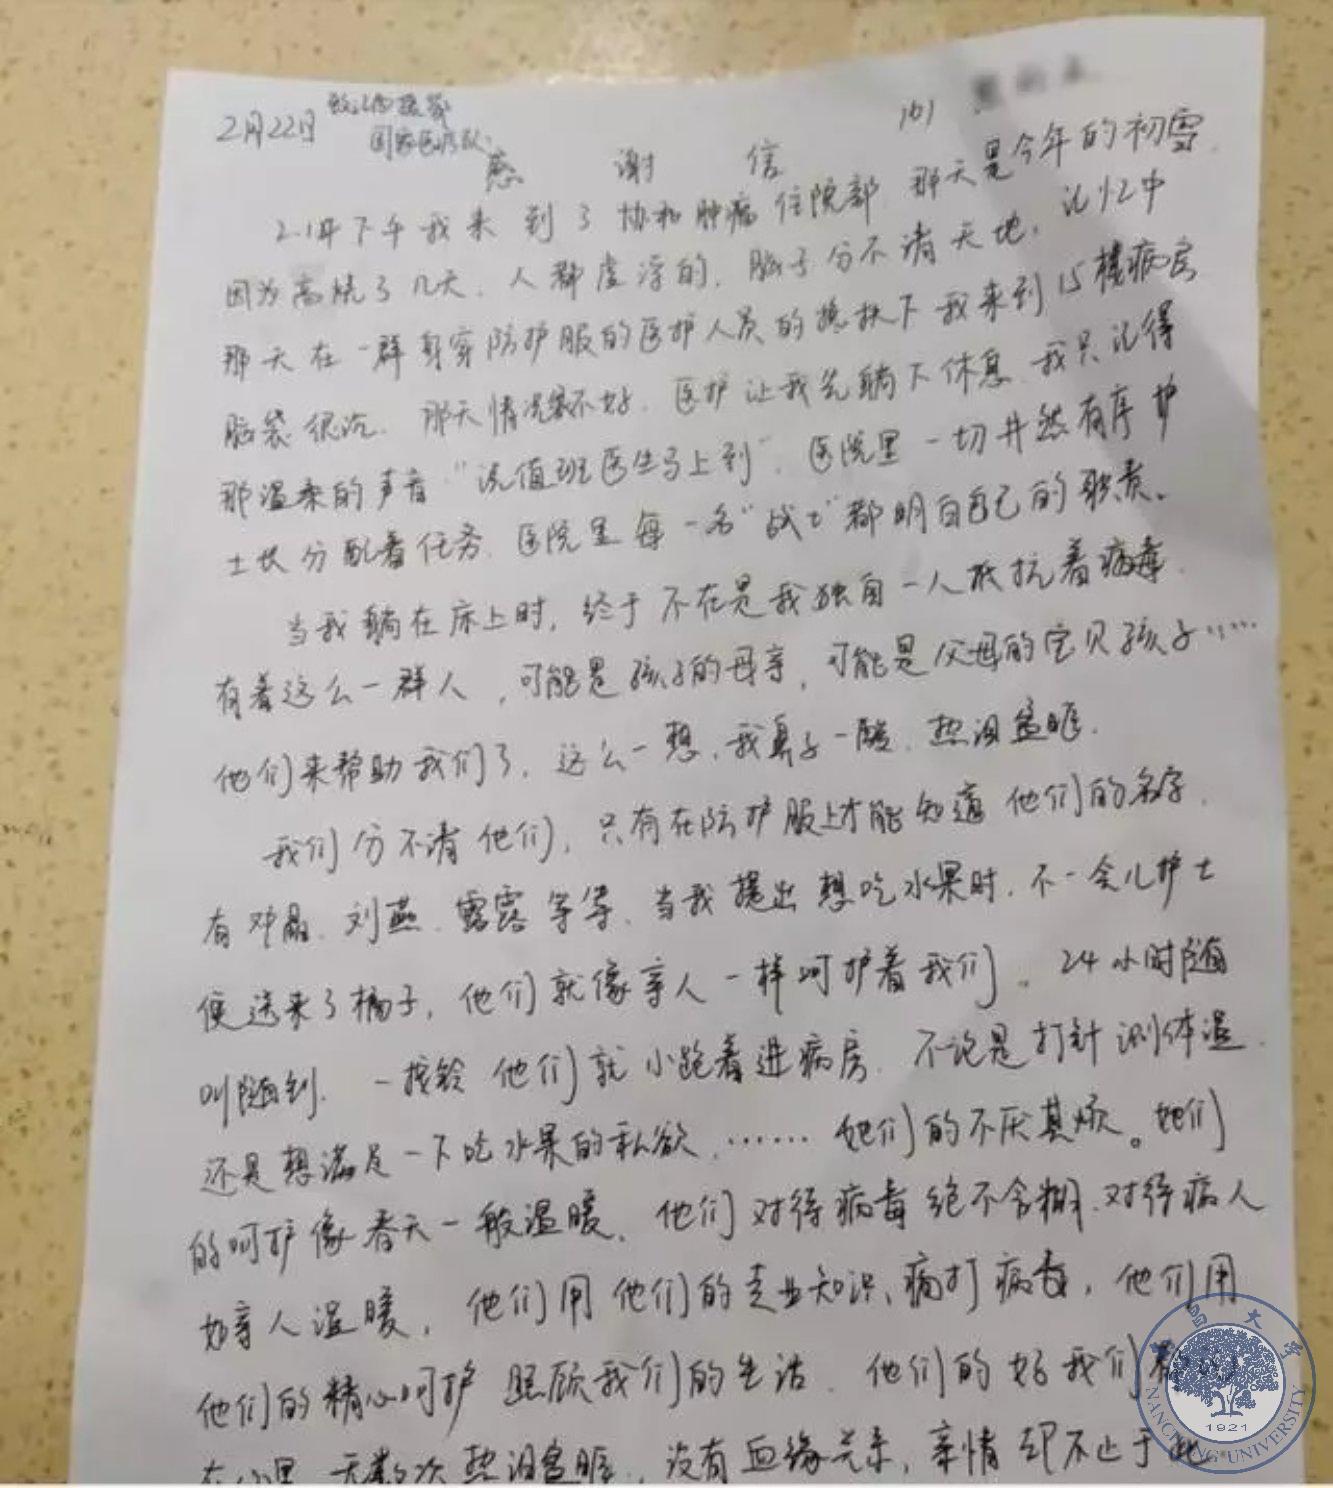 2月22日
致江西援鄂
国家医疗队
161
感谢信
2.15下午我来到了协和肿瘤住院部 那天是今年的初雪.
因为高烧了几天、人都虚浮的, 脑子分不清天地, 记忆中
那天在一群身穿防护服的医护人员的搀扶下我来到15楼病房
脑袋很沉、那天情况很不好. 医护让我先躺下休息. 我只记得
那温柔的声音“说值班医生马上到”. 医院里一切井然有序 护
士长分配着任务. 医院里每一名“战士”都明白自己的职责。
当我躺在床上时, 终于不在是我独自一人抵抗着病毒.
有着这么一群人, 可能是孩子的母亲, 可能是父母的宝贝孩子……
他们来帮助我们了, 这么一想, 我鼻子一酸. 热泪盈眶.
我们分不清他们, 只有在防护服上才能知道他们的名字.
有邓晶. 刘燕. 露露等等. 当我提出想吃水果时. 不一会儿护士
便送来了橘子, 他们就像亲人一样呵护着我们。24小时随
叫随到. 一按铃他们就小跑着进病房. 不论是打针测体温.
还是想满足一下吃水果的私欲, …… 她们的不厌其烦。她们
的呵护像春天一般温暖. 他们对待病毒绝不含糊. 对待病人
如亲人温暖, 他们用他们的专业知识、痛打病毒, 他们用
他们的精心呵护 照顾我们的生活. 他们的好我们都
在心里 无数次热泪盈眶., 没有血缘关系, 亲情却不止于此
南昌大学
NANCHANG UNIVERSITY
1921